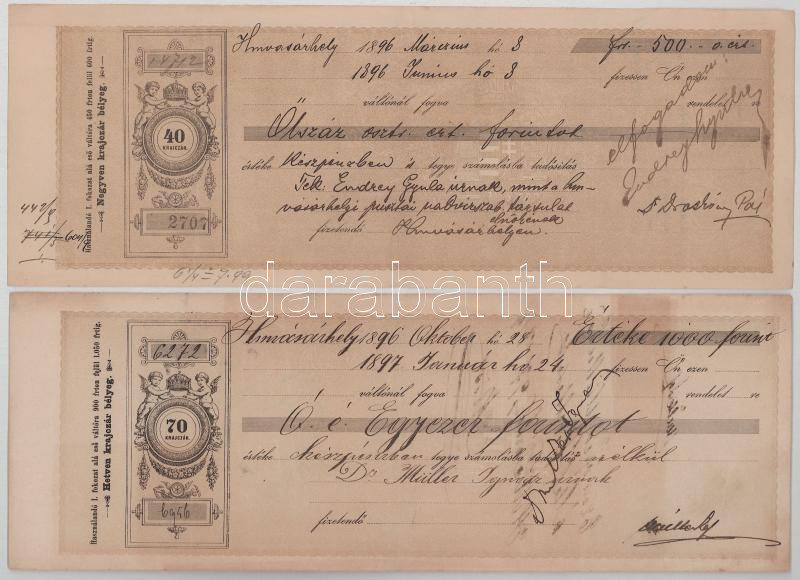 Használandó I. fokozat alá eső váltóra 450 frton felül 600 frtig.
Negyven krajczár bélyeg.
14712
40
KRAJCZÁR.
2707
Hmvasárhely 1896 Márczius hó 3 frt. 500 o. ért.
1896 Junius hó 3 fizessen Ön ezen
váltónál fogva rendelet re
Ötszáz oszt. ért. forintot
értéke készpénzben s tegye számolásba tudósítás
Tek. Endrey Gyula úrnak, mint a Hm-
vásárhelyi pusztai társulat
elnökének
fizetendő Hmvásárhelyen.
elfogadom
Endrey Gyula
darabanth
Használandó I. fokozat alá eső váltóra 900 frton felül 1,050 frtig.
Hetven krajczár bélyeg.
6272
70
KRAJCZÁR.
6956
Hmvásárhely 1896 Oktober hó 28 Értéke 1000 forint
1897 Január hó 24. fizessen Ön ezen
váltónál fogva rendelet re
O. é. Egyezer forintot
értéke készpénzben tegye számolásba tudósítás nélkül
Dr Müller úrnak
fizetendő